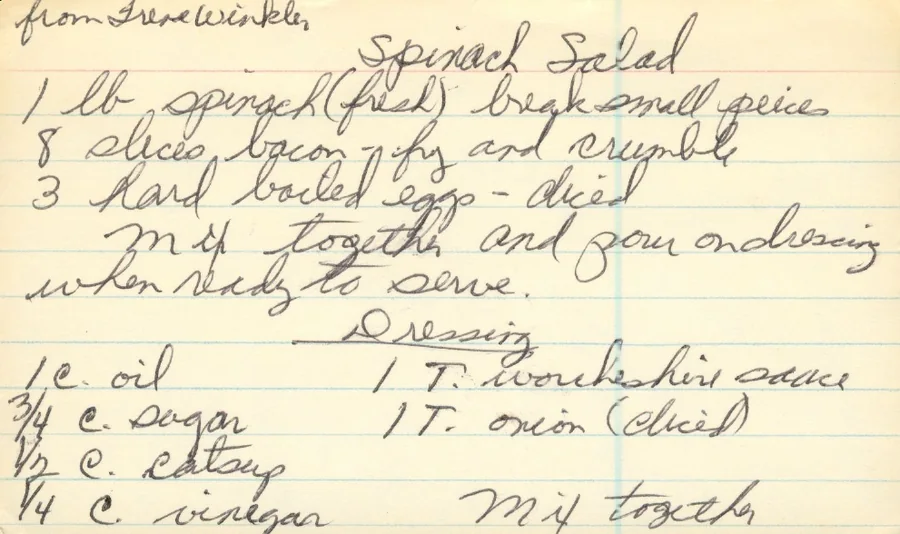 from Irene Winkler
Spinach Salad
1 lb spinach (fresh) break small peices
8 slices bacon - fry and crumble
3 hard boiled eggs - diced
Mix together and pour on dressing
when ready to serve.
Dressing
1 C. oil
1 T. worcheshire sauce
3/4 C. sugar
1 T. onion (diced)
1/2 C. catsup
1/4 C. vinegar
Mix together